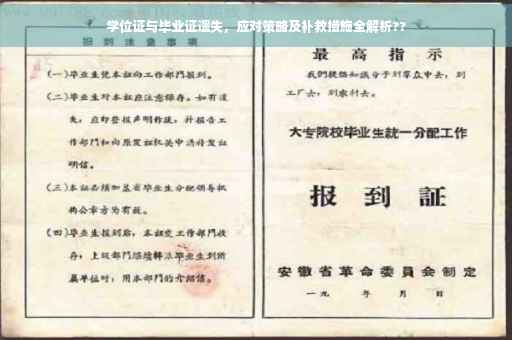 学位证与毕业证遗失，应对策略及补救措施全解析??
报到注意事项
(一)毕业生凭本证向工作部门报到。
(二)毕业生对本证应注意保存。如有遗
失，应即登报声明作废，并报告工
作部门和向原发证机关申请补发证
明信。
(三)本证必须加盖省毕业生分配领导机
构公章方为有效。
(四)毕业生报到后，本证交工作部门收
存；上级部门继续转派毕业生到所
属单位时，用本部门的介绍信。
最高指示
我们提倡知识分子到群众中去，到
工厂去，到农村去。
大专院校毕业生统一分配工作
报到证
安徽省革命委员会制定
一九 年 月 日